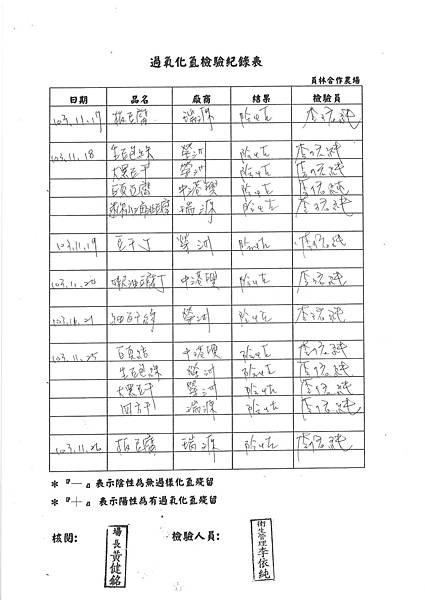 過氧化氫檢驗紀錄表
員林合作農場
日期 品名 廠商 結果 檢驗員
103.11.17 板豆腐 瑞源 陰性 李依純
103.11.18 生豆包絲 榮洲 陰性 李依純
大黑豆干 榮洲 陰性 李依純
百頁豆腐 中港興 陰性 李依純
瑞源 陰性 李依純
103.11.19 豆干丁 榮洲 陰性 李依純
103.11.20 中港興 陰性 李依純
103.11.21 榮洲 陰性 李依純
103.11.25 百頁結 中港興 陰性 李依純
生豆包絲 榮洲 陰性 李依純
大黑豆干 榮洲 陰性 李依純
四方干 瑞源 陰性 李依純
103.11.26 板豆腐 瑞源 陰性 李依純
*『—』表示陰性為無過樣化氫殘留
*『+』表示陽性為有過氧化氫殘留
核閱: 場長黃健銘 檢驗人員: 衛生管理李依純